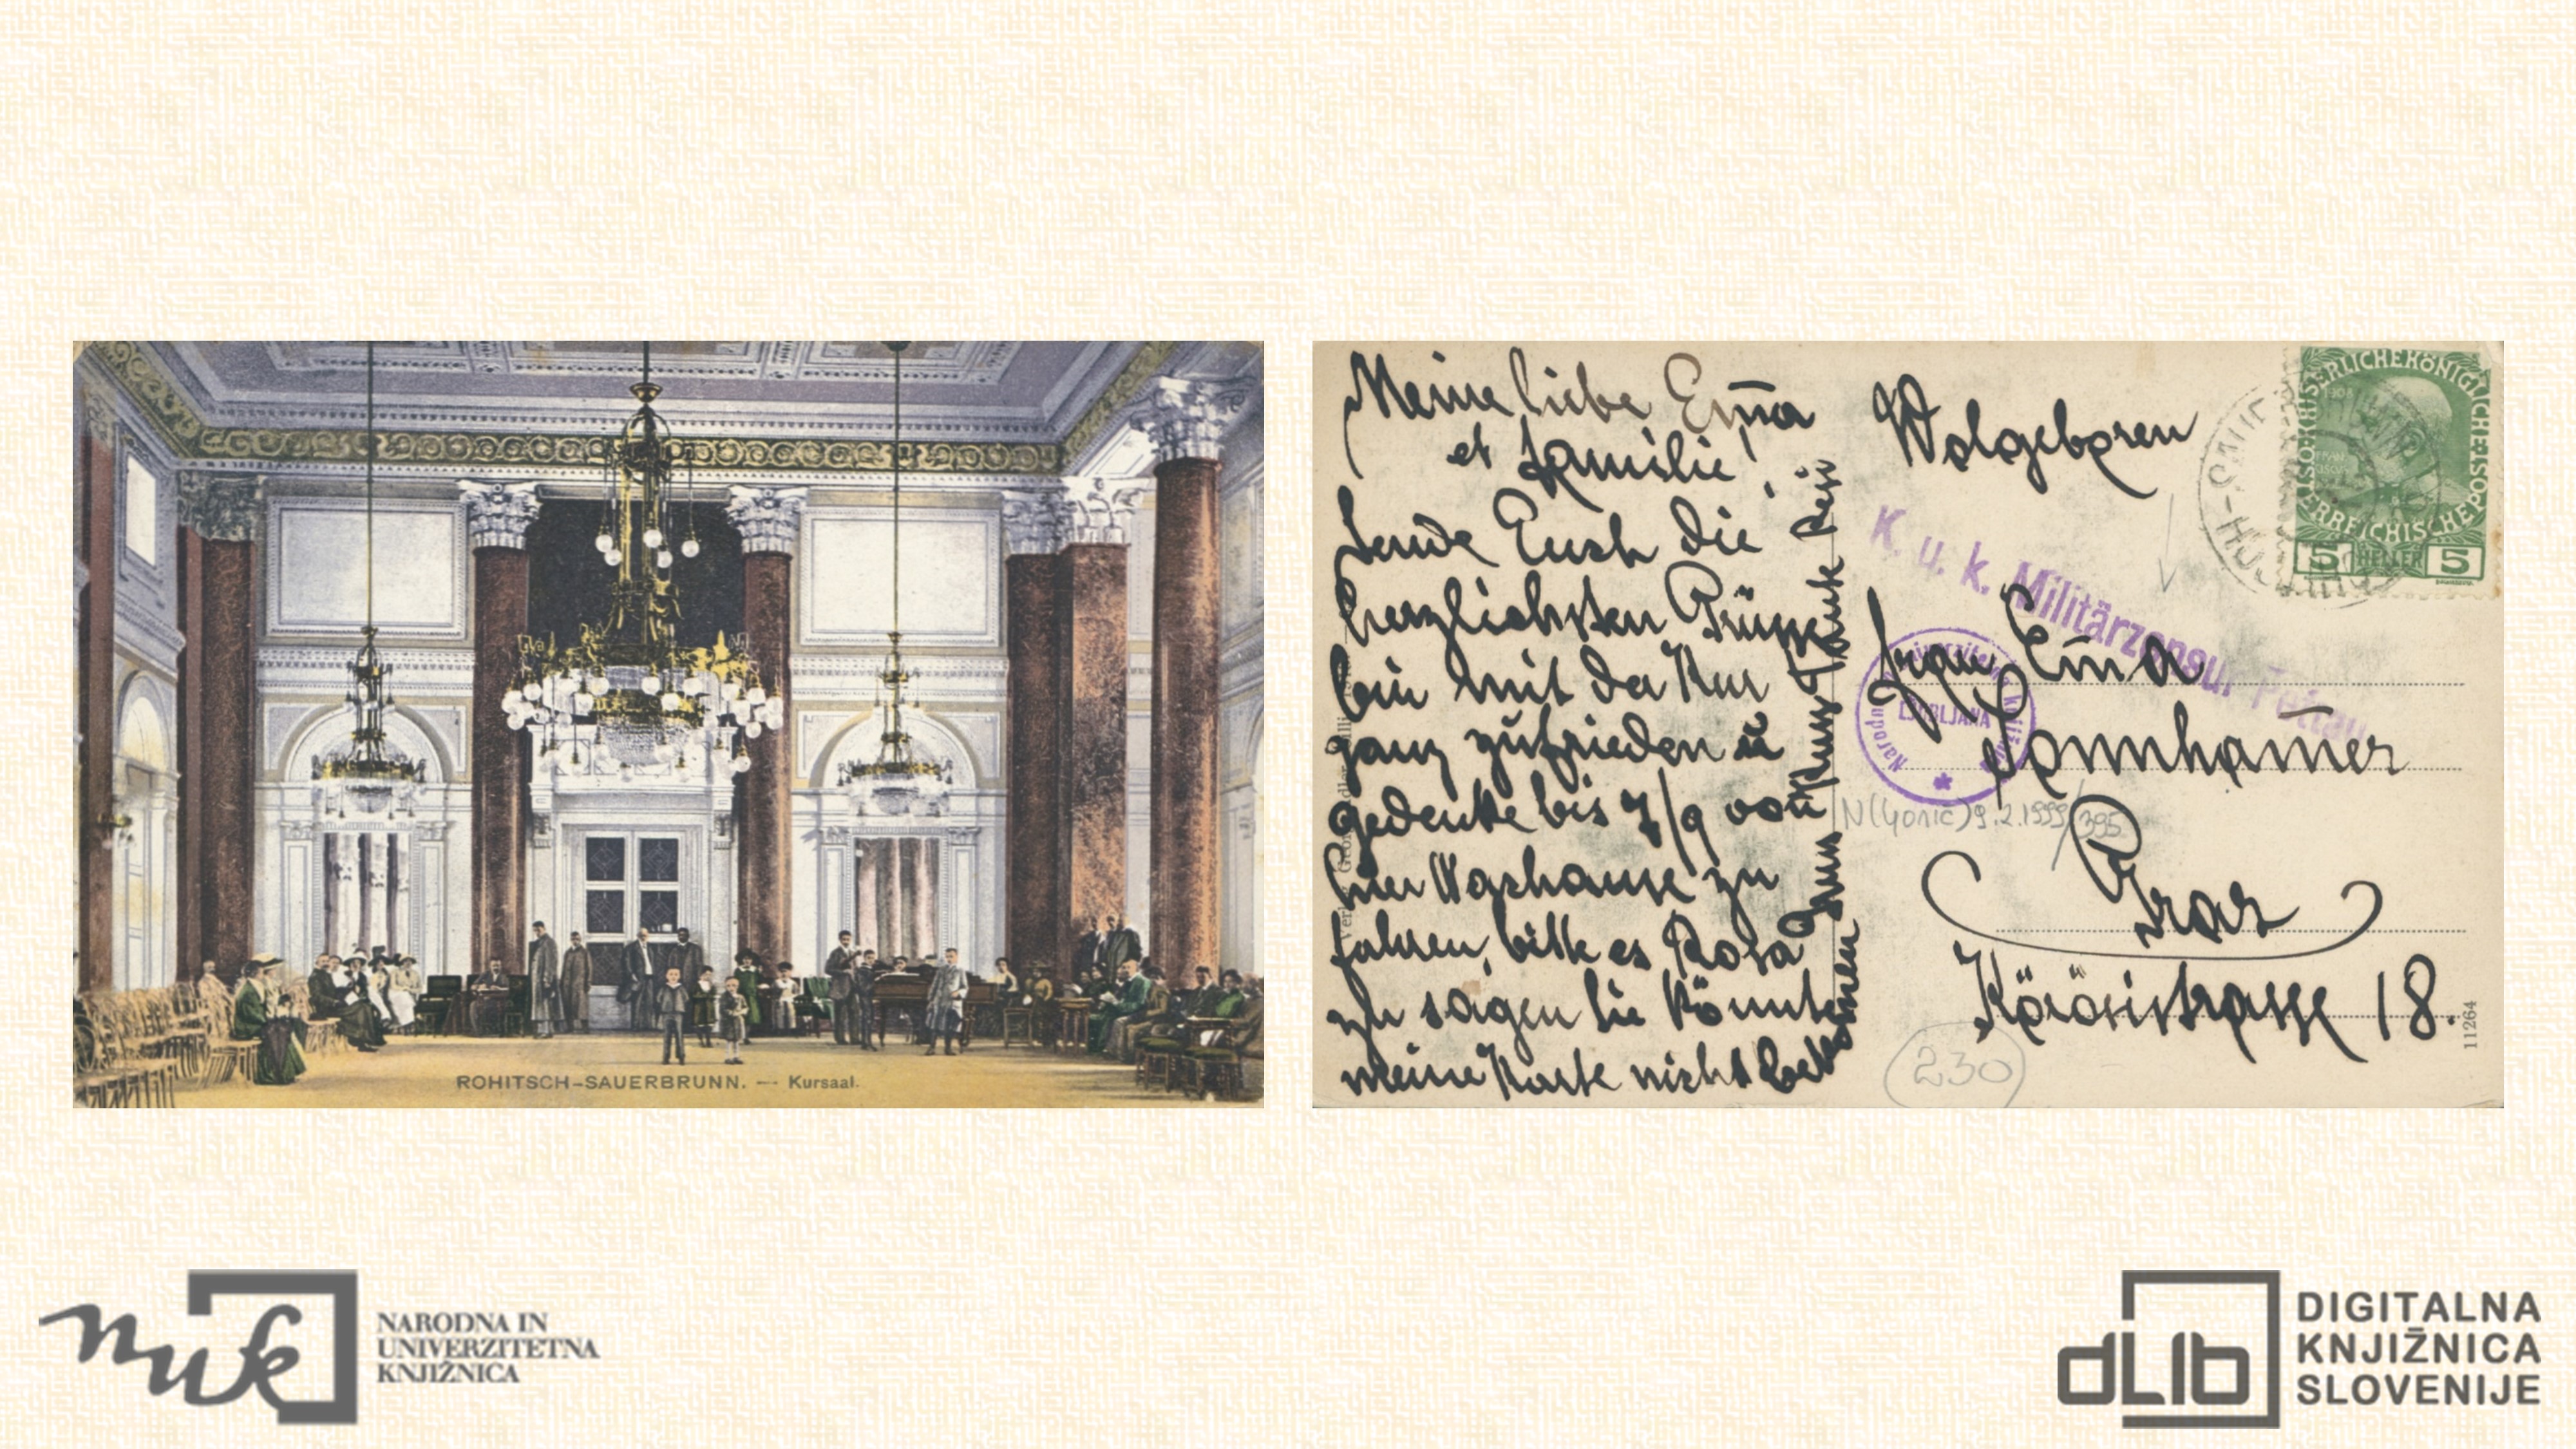 ROHITSCH-SAUERBRUNN. — Kursaal.
Meine liebe Em̄a
et Familie!
Sende Euch die
herzlichsten Grüsse
bin mit der Kur
ganz zufrieden u
gedenke bis 7/9 von
hier Naghause zu
fahren, bitte es Rosa
zu sagen sie könnte
meine Karte nicht bekommen
Wolgeboren
K. u. k. Militärzensur Pettau
Frau Em̄a
Sonnham̄er
Graz
Körösistrasse 18.
KAISERLICHE KÖNIGLICHE
ÖSTERREICHISCHE POST
1908
5 HELLER 5
LJUBLJANA
9.2.1999/395
230
11264
nuk
NARODNA IN
UNIVERZITETNA
KNJIŽNICA
dLib
DIGITALNA
KNJIŽNICA
SLOVENIJE